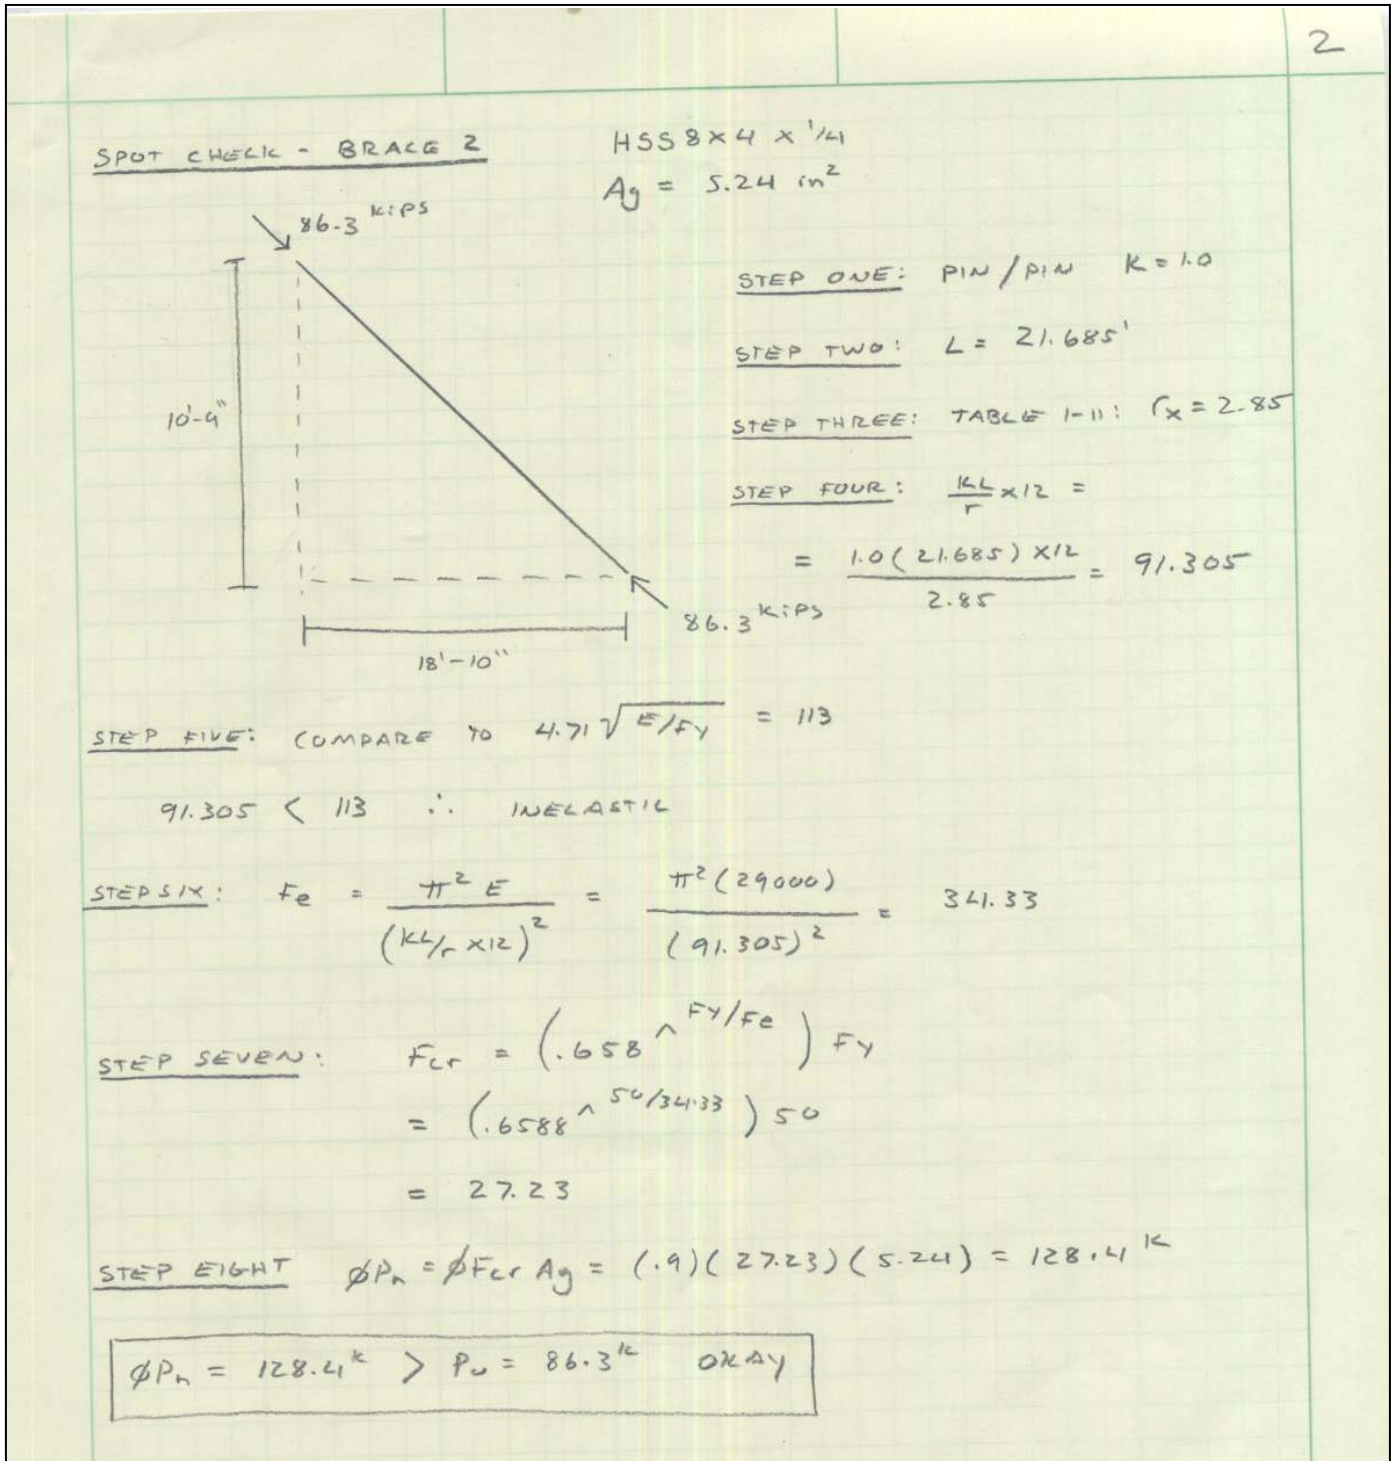 2
SPOT CHECK - BRACE 2
HSS 8 x 4 x 1/4
Ag = 5.24 in²
86.3 kips
10'-9"
18'-10"
86.3 kips
STEP ONE: PIN/PIN K = 1.0
STEP TWO: L = 21.685'
STEP THREE: TABLE 1-11: rx = 2.85
STEP FOUR: KL/r x12 =
= 1.0(21.685) x12 / 2.85 = 91.305
STEP FIVE: COMPARE TO 4.71 √E/Fy = 113
91.305 < 113 ∴ INELASTIC
STEP SIX: Fe = π² E / (KL/r x12)² = π²(29000) / (91.305)² = 341.33
STEP SEVEN: Fcr = (.658 ^ Fy/Fe) Fy
= (.6588 ^ 50/34.33) 50
= 27.23
STEP EIGHT øPn = øFcr Ag = (.9)(27.23)(5.24) = 128.4 k
øPn = 128.4 k > Pu = 86.3 k OKAY